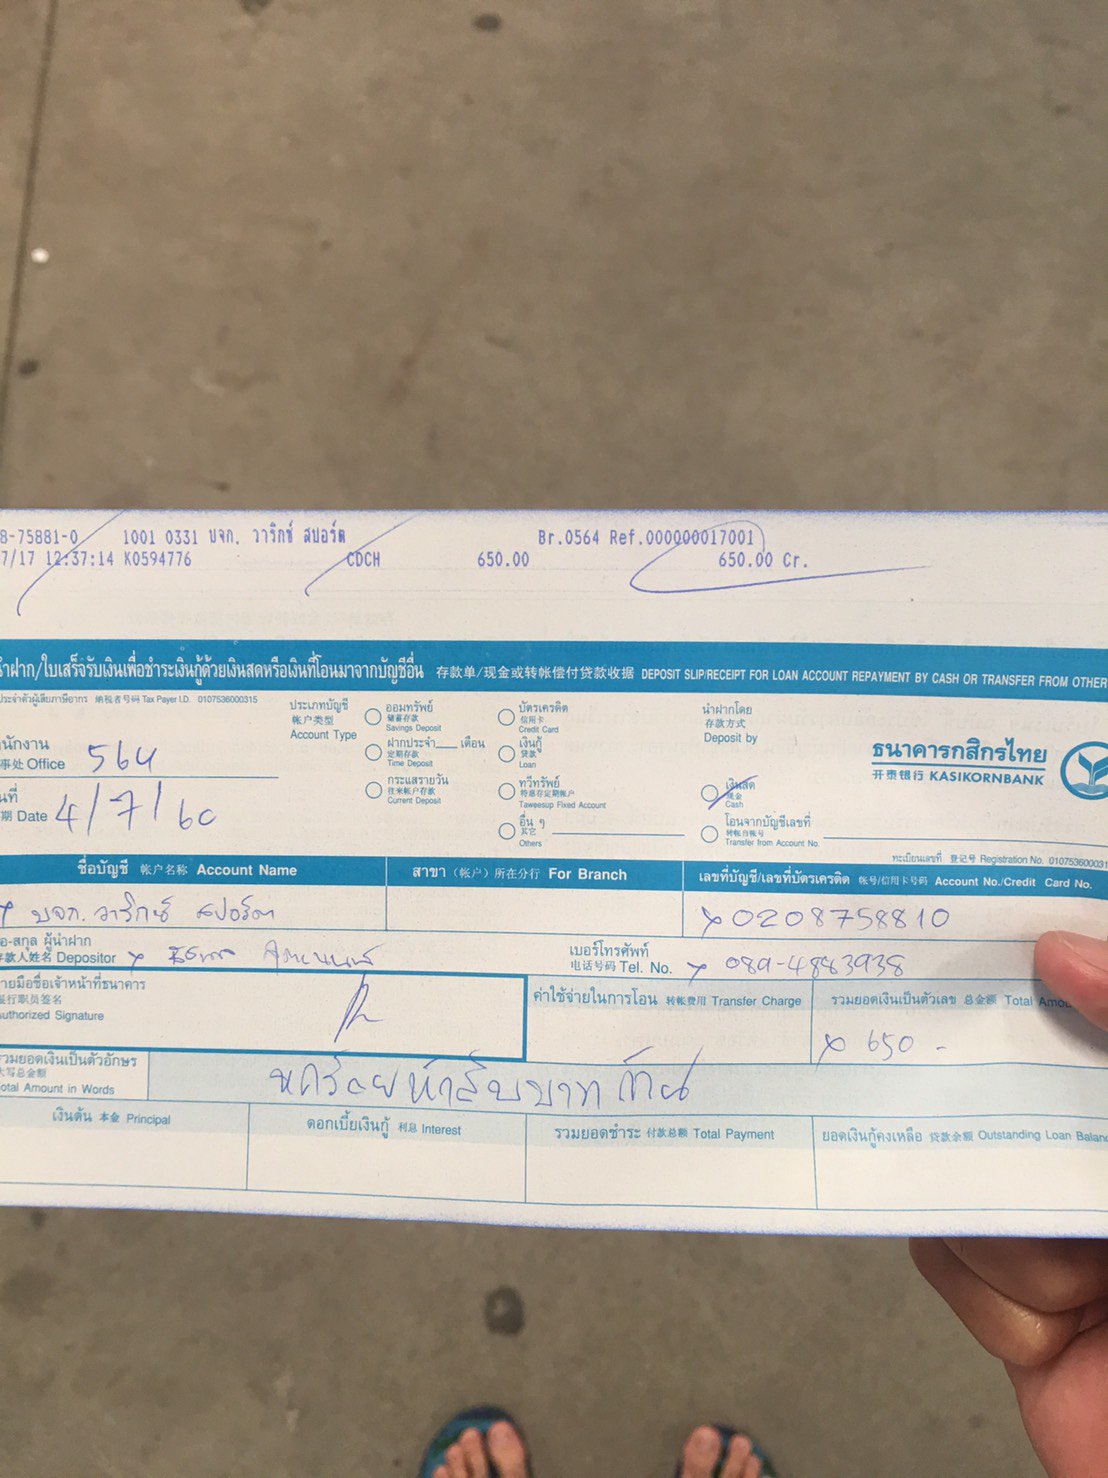 8-75881-0 1001 0331 บจก. วาริกซ์ สปอร์ต Br.0564 Ref.000000017001
7/17 12:37:14 K0594776 CDCH 650.00 650.00 Cr.
นำฝาก/ใบเสร็จรับเงินเพื่อชำระเงินกู้ด้วยเงินสดหรือเงินที่โอนมาจากบัญชีอื่น 存款单/现金或转帐偿付贷款收据 DEPOSIT SLIP/RECEIPT FOR LOAN ACCOUNT REPAYMENT BY CASH OR TRANSFER FROM OTHER
ประจำตัวผู้เสียภาษีอากร 纳税者号码 Tax Payer I.D. 0107536000315
ประเภทบัญชี
帐户类型
Account Type
ออมทรัพย์
储蓄存款
Savings Deposit
ฝากประจำ____เดือน
定期存款
Time Deposit
กระแสรายวัน
往来帐户存款
Current Deposit
บัตรเครดิต
信用卡
Credit Card
เงินกู้
贷款
Loan
ทวีทรัพย์
特惠存定期帐户
Taweesup Fixed Account
อื่น ๆ
其它
Others
นำฝากโดย
存款方式
Deposit by
เงินสด
现金
Cash
โอนจากบัญชีเลขที่
转帐自帐号
Transfer from Account No.
ธนาคารกสิกรไทย
开泰银行 KASIKORNBANK
สำนักงาน
事处 Office 564
วันที่
期 Date 4/7/60
ทะเบียนเลขที่ 登记号 Registration No. 010753600031
ชื่อบัญชี 帐户名称 Account Name สาขา (帐户) 所在分行 For Branch เลขที่บัญชี/เลขที่บัตรเครดิต 帐号/信用卡号码 Account No./Credit Card No.
บจก. วาริกซ์ สปอร์ต x 0208758810
อ-สกุล ผู้นำฝาก
存款人姓名 Depositor x
เบอร์โทรศัพท์
电话号码 Tel. No. x 089-4883938
ลายมือชื่อเจ้าหน้าที่ธนาคาร
银行职员签名
Authorized Signature
ค่าใช้จ่ายในการโอน 转帐费用 Transfer Charge รวมยอดเงินเป็นตัวเลข 总金额 Total Amou
x 650 -
รวมยอดเงินเป็นตัวอักษร
大写总金额
Total Amount in Words
หกร้อยห้าสิบบาทถ้วน
เงินต้น 本金 Principal ดอกเบี้ยเงินกู้ 利息 Interest รวมยอดชำระ 付款总额 Total Payment ยอดเงินกู้คงเหลือ 贷款余额 Outstanding Loan Balanc